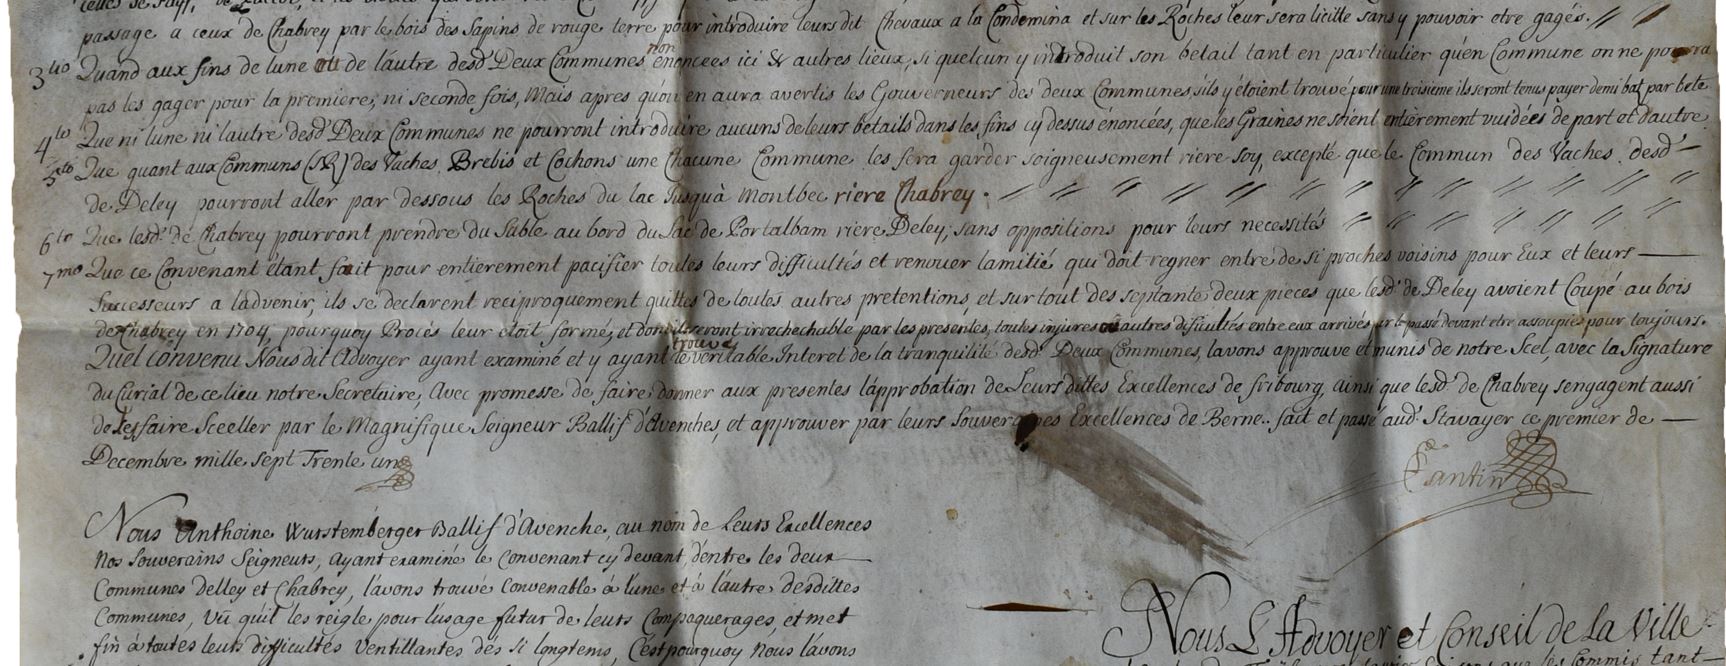 passage a ceux de Chabrey par le bois des Sapins de rouge terre pour introduire leurs dit Chevaux a la Condemina et sur les Roches leur sera licitte sans y pouvoir etre gagés. // //
3tio Quand aux fins de lune ou de lautre desd. Deux Communes non énoncées ici & autres lieux, si quelcun y introduit son betail tant en particulier qu'en Commune on ne pourra
pas les gager pour la premiere, ni seconde fois, Mais apres qu'on en aura avertis les Gouverneurs des deux Communes s'ils y étoient trouvé pour une troisieme ils seront tenus payer demi baz par bete
4to Que ni lune ni lautre desd. Deux Communes ne pourront introduire aucuns de leurs bétails dans les fins cy dessus énoncées, que les Graines ne soient entièrement vuidées de part et d'autre
5to Que quant aux Communs (S.R.) des Vaches, Brebis et Cochons une Chacune Commune les fera garder soigneusement riere soy, excepté que le Commun des Vaches desd.
de Deley pourront aller par dessous les Roches du lac Jusquà Montbec riere Chabrey. // // // // // // // // // //
6to Que lesd. de Chabrey pourront prendre du Sable au bord du Lac de Portalbam riere Deley, sans oppositions pour leurs necessités // // // // // // //
7mo Que ce Convenant étant fait pour entierement pacifier toutes leurs difficultés et renouer lamitié qui doit regner entre de si proches voisins pour Eux et leurs
Successeurs a ladvenir, ils se declarent reciproquement quittes de toutes autres pretentions, et sur tout des septante deux pieces que lesd. de Deley avoient Coupé au bois
de Chabrey en 1704, pourquoy Procés leur étoit formé, et dont ils seront irrechechable par les presentes, toutes injures ou autres dificultés entre eux arrivés par le passé devant etre assoupies pour toujours.
Quel Convenu Nous dit Advoyer ayant examiné et y ayant trouvé le veritable Interet de la tranquilité desd. Deux Communes, lavons approuve et munis de notre Scel, avec la Signature
du Curial de ce lieu notre Secretaire, Avec promesse de faire donner aux presentes l'approbation de Leurs dittes Excellences de fribourg, ainsi que lesd. de Chabrey s'engagent aussi
de Les faire Sceeller par le Magnifique Seigneur Ballif d'Avenches, et approuver par leurs Souveraines Excellences de Berne. fait et passé aud. Stavayer ce premier de
Decembre mille sept Trente un
Tantin
Nous Anthoine Wurstemberger Ballif d'Avenche, au nom de Leurs Excellences
Nos Souverains Seigneurs, ayant examiné le Convenant cy devant, d'entre les deux
Communes Delley et Chabrey, l'avons trouvé Convenable à l'une et à l'autre desdittes
Communes, Vû qu'il les réigle pour l'usage futur de leurs Compaquerages, et met
fin à toutes leurs difficultés Ventillantes dés si longtems, C'est pourquoy Nous l'avons
Nous L'Advoyer et Conseil de la Ville